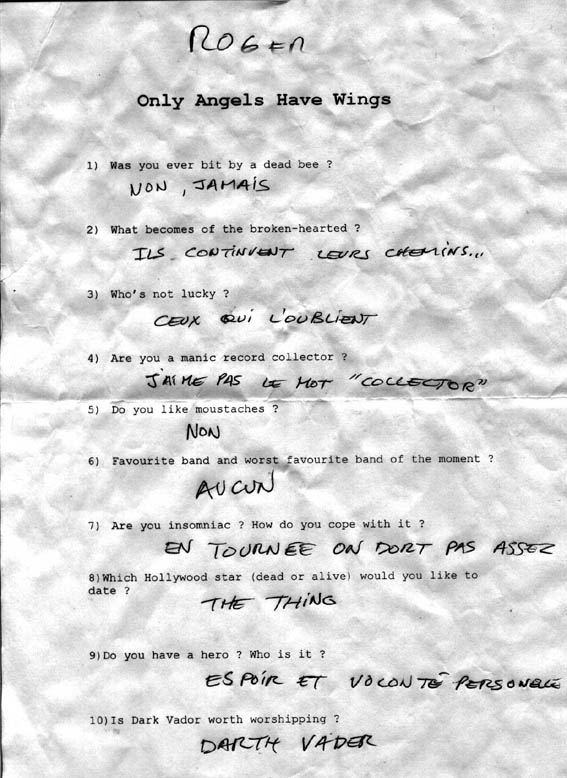 ROGER
Only Angels Have Wings
1) Was you ever bit by a dead bee ?
NON, JAMAIS
2) What becomes of the broken-hearted ?
ILS CONTINUENT LEURS CHEMINS...
3) Who's not lucky ?
CEUX QUI L'OUBLIENT
4) Are you a manic record collector ?
J'AIME PAS LE MOT "COLLECTOR"
5) Do you like moustaches ?
NON
6) Favourite band and worst favourite band of the moment ?
AUCUN
7) Are you insomniac ? How do you cope with it ?
EN TOURNEE ON DORT PAS ASSEZ
8)Which Hollywood star (dead or alive) would you like to
date ?
THE THING
9)Do you have a hero ? Who is it ?
ESPOIR ET VOLONTÉ PERSONELLE
10)Is Dark Vador worth worshipping ?
DARTH VADER